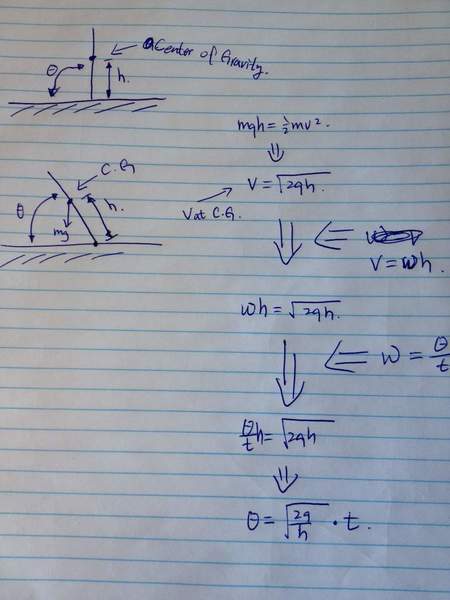 Center of Gravity.
θ
h.
mgh = ½mv².
⇓
C.G
V = √2gh.
h.
θ
V at C.G.
mg
⇓ ⇐
V = ωh.
ωh = √2gh.
⇓ ⇐ ω = θ/t
θ/t h = √2gh
⇓
θ = √2g/h · t.